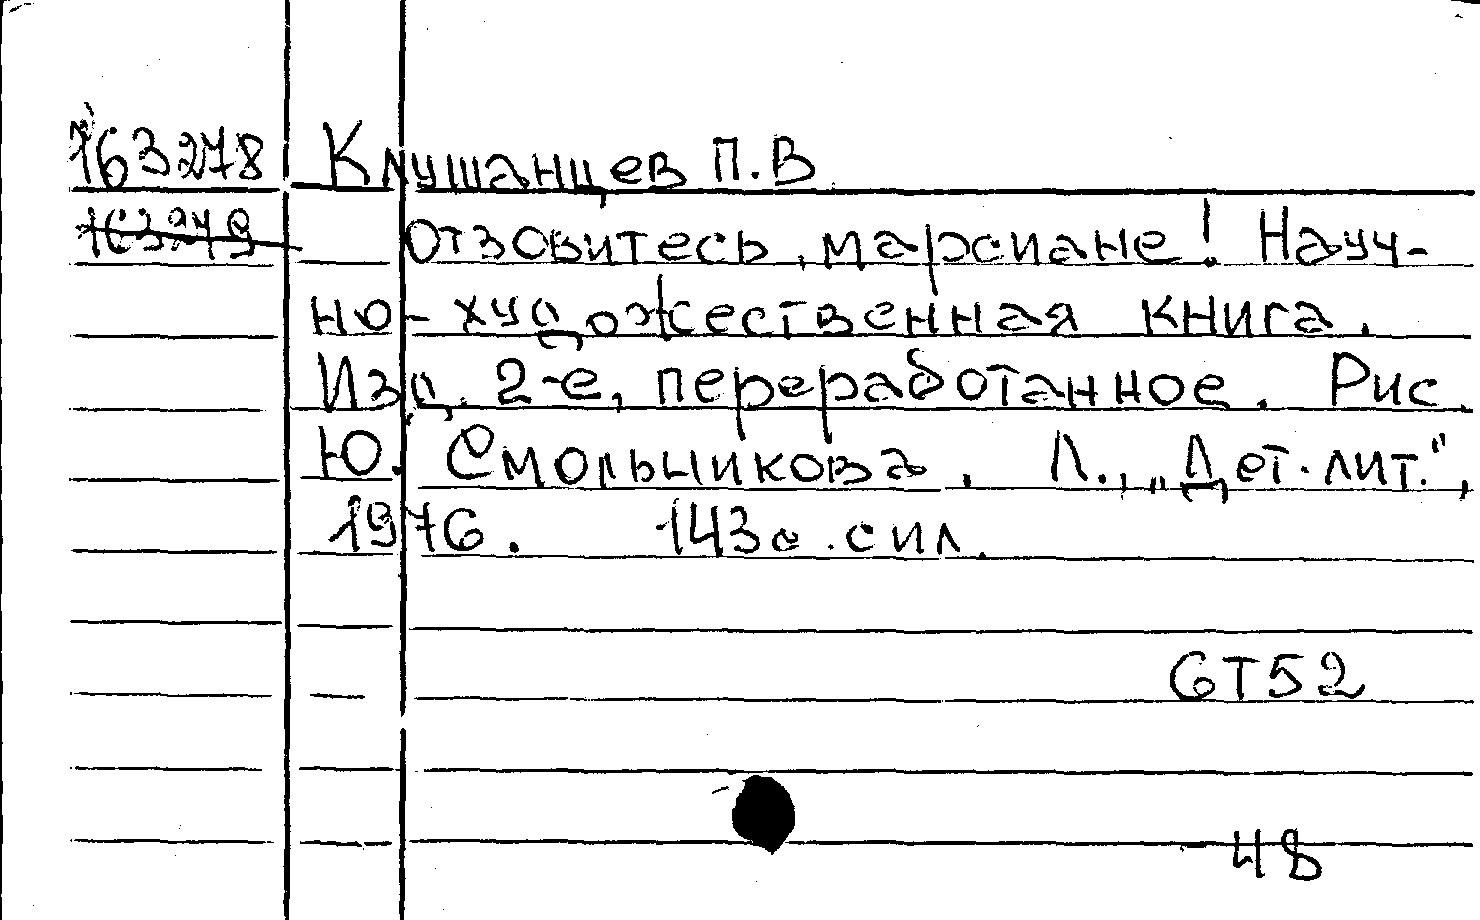 163278 Клушанцев П.В
163279 Отзовитесь, марсиане! Науч-
но-художественная книга.
Изд. 2-е, переработанное. Рис.
Ю. Смольникова. Л., „Дет. лит.",
1976. 143 с. с ил.
6Т52
48